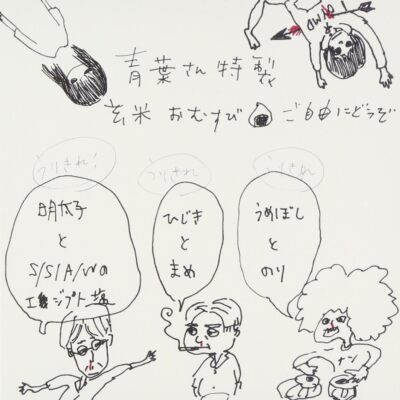 青葉さん特製
玄米 おむすび ご自由にどうぞ
うりきれ！
うりきれ
うりきれ
明太子
と
S/S/A/Wの
エジプト塩
ひじき
と
まめ
うめぼし
と
のり
ナン